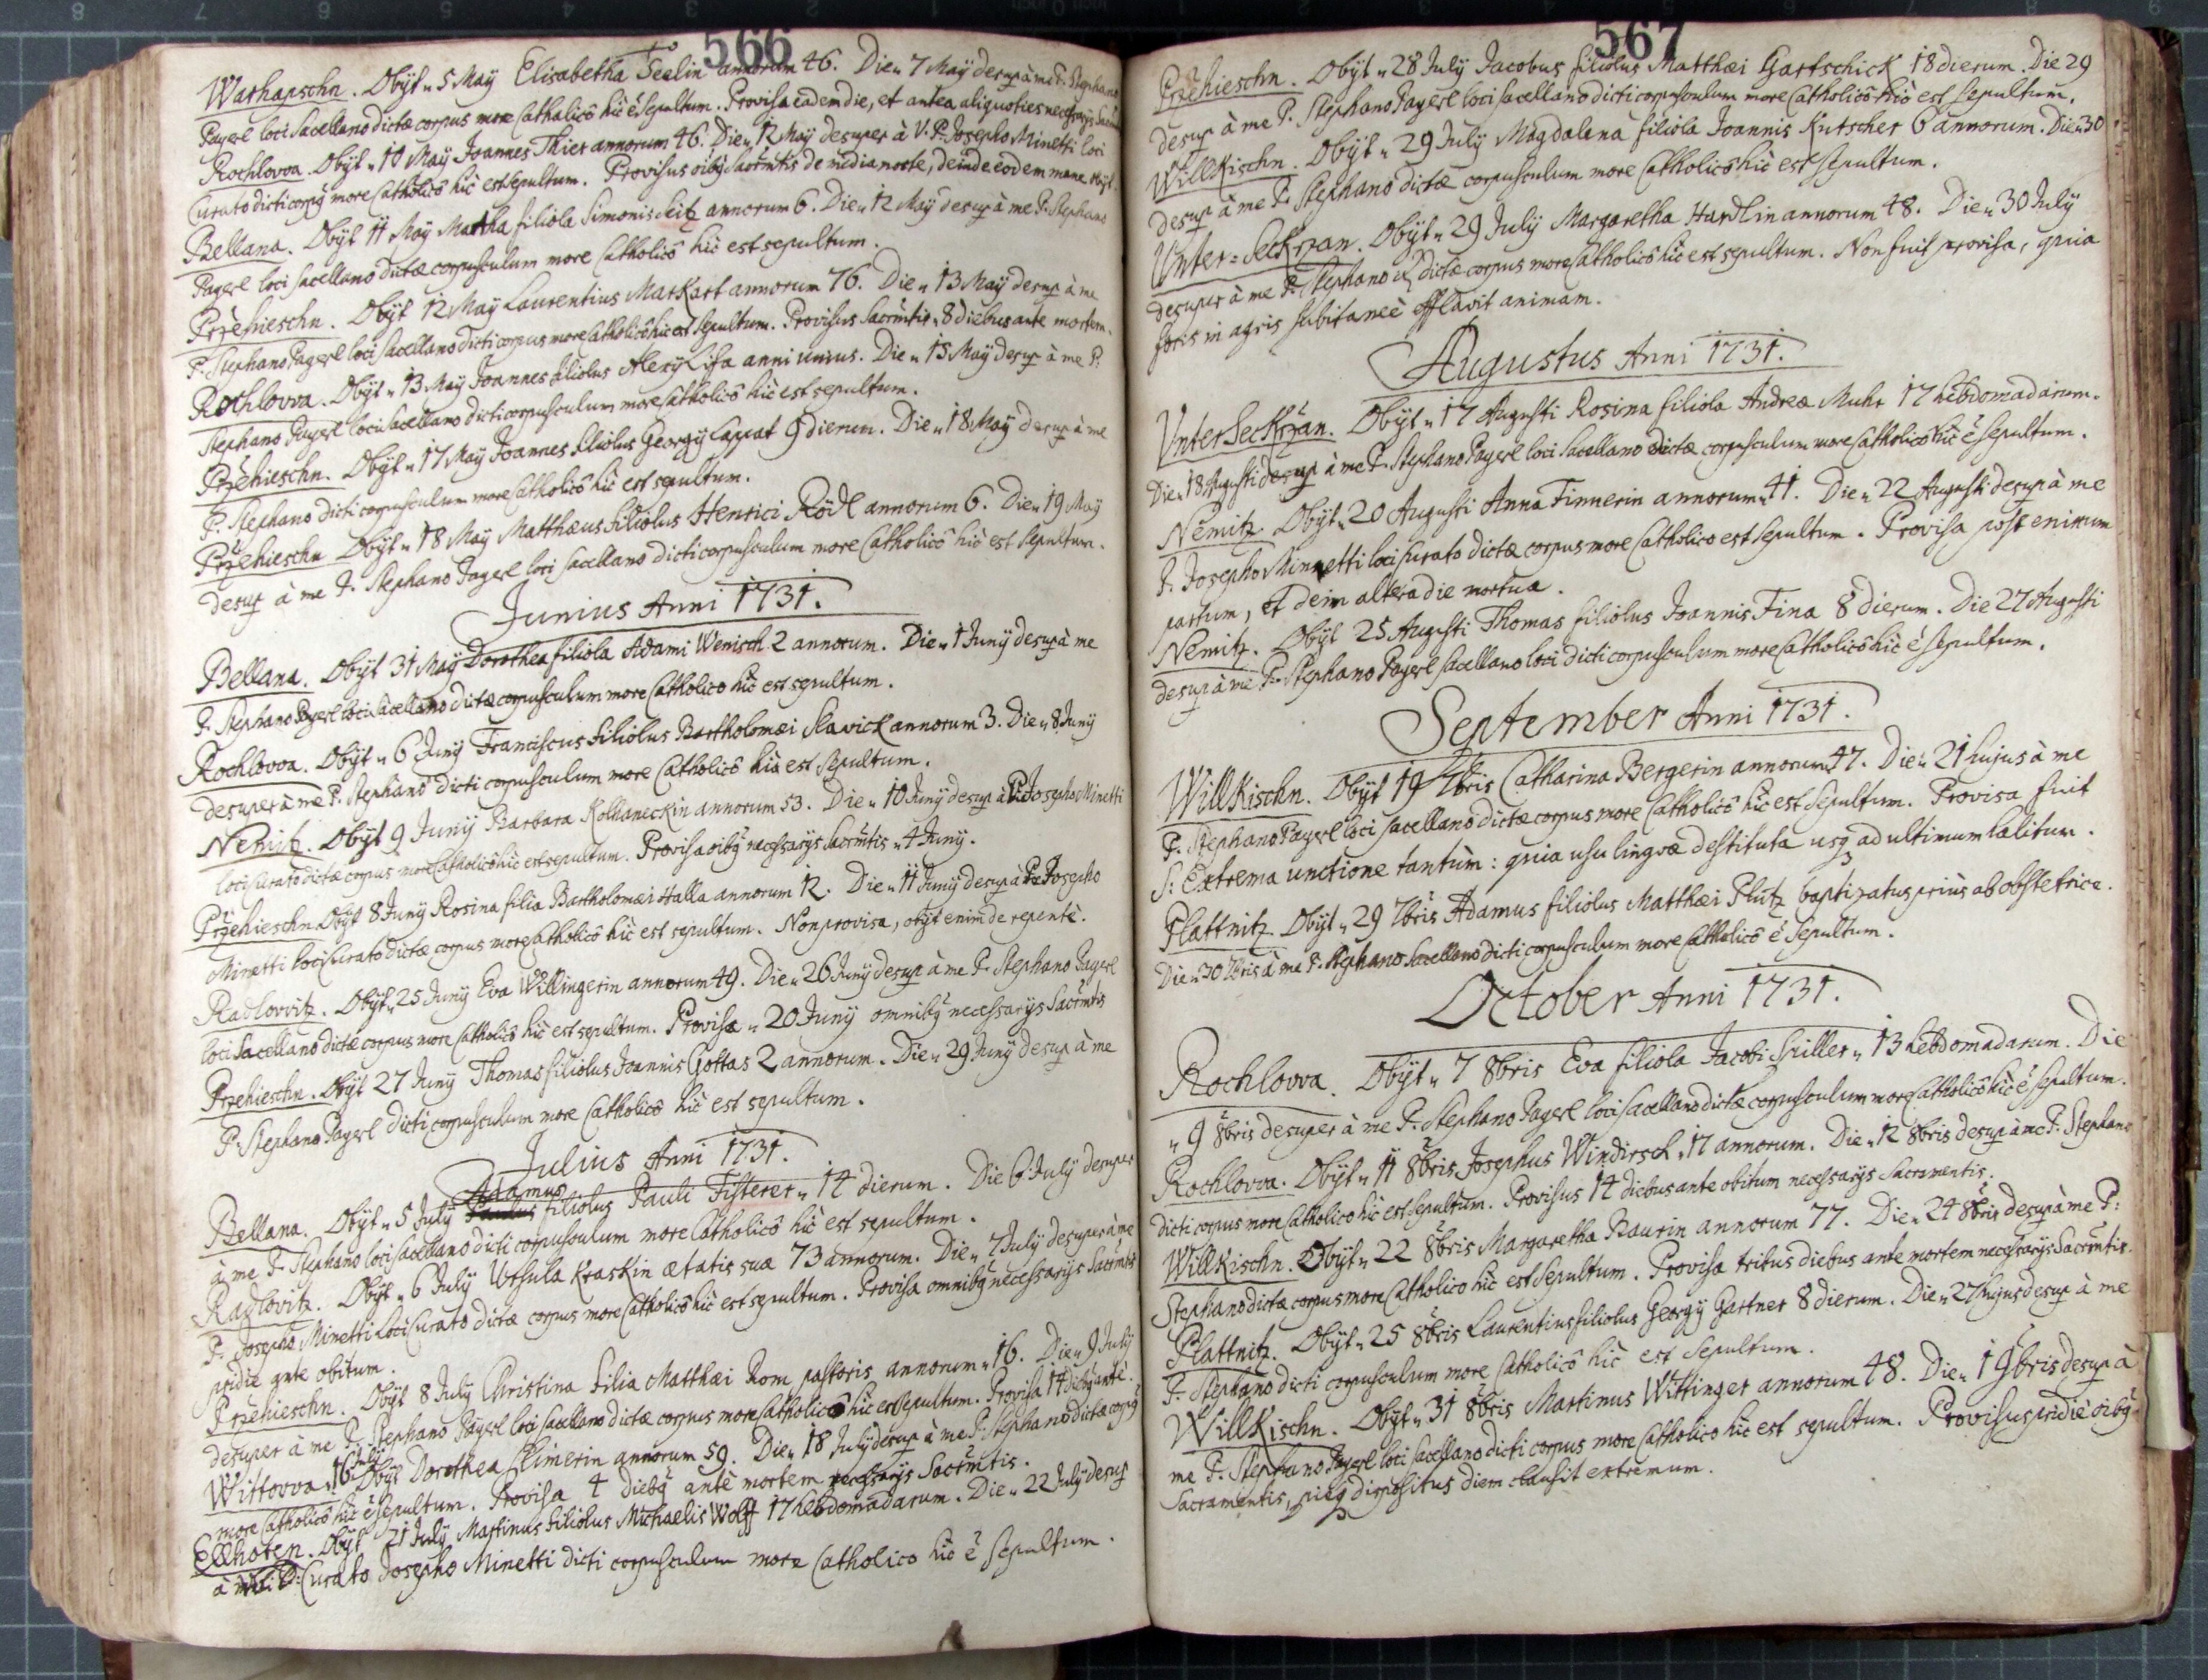 566
Warhapschn. Obijt „ 5 May Elisabetha Seelin annorum 46. Die „ 7 May desup à me P. Stephano
Pagerl loci Sacellano dictæ corpus more Catholicô hìc ē sepultum. Provisa eadem die, et antea aliquoties necessarijs
Rochlovva. Obijt „ 10 May Joannes Thier annorum 46. Die „ 12 May desuper à V. P. Josepho Minetti loci
Curato dicti corpg more Catholicô hìc est sepultum. Provisus oibg Sacrmtis de media nocte, deinde eodem mane obijt.
Bellana. Obijt 11 May Martha filiola Simonis Seitz annorum 6. Die „ 12 May desup à me P. Stephano
Pagerl loci sacellano dictæ corpusculum more Catholicô hìc est sepultum.
Przehieschn. Obijt 12 May Laurentius Markart annorum 76. Die „ 13 May desup à me
P. Stephano Pagerl loci sacellano dicti corpus more Catholicô hic est sepultum. Provisus Sacrmtis „ 8 diebus ante mortem.
Rochlovva. Obijt „ 13 May Joannes filiolus Alexij Lissa anni unius. Die „ 15 May desup à me P:
Stephano Pagerl loci sacellano dicti corpusculum more Catholicô hìc est sepultum.
Przehieschn. Obijt „ 17 May Joannes filiolus Georgij Cappat 9 dierum. Die „ 18 May desup à me
P. Stephano dicti corpusculum more Catholicô hìc est sepultum.
Przehieschn Obijt „ 18 May Matthæus filiolus Henrici Rödl annorum 6. Die „ 19 May
desup à me P. Stephano Pagerl loci sacellano dicti corpusculum more Catholicô hìc est sepultum.
Junius Anni 1731.
Bellana. Obijt 31 May Dorothea filiola Adami Wenisch 2 annorum. Die „ 1 Junij desup à me
P. Stephano Pagerl loci sacellano dictæ corpusculum more Catholico hìc est sepultum.
Rochlovva. Obijt „ 6 Junij Franciscus filiolus Bartholomæi Slavick annorum 3. Die „ 8 Junij
desuper à me P. Stephano dicti corpusculum more Catholicô hìc est sepultum.
Nemitz. Obijt 9 Junij Barbara Kolhaneckin annorum 53. Die „ 10 Junij desup à P. Josepho Minetti
loci Curato dictæ corpus more Catholicô hìc est sepultum. Provisa oibg necessarijs Sacrmtis „ 4 Junij.
Przehieschn Obijt 8 Junij Rosina filia Bartholomæi Halla annorum 12. Die „ 11 Junij desup à P. Josepho
Minetti loci Curato dictæ corpus more Catholicô hìc est sepultum. Non provisa, obijt enim de repentè.
Radlovvitz. Obijt „ 25 Junij Eva Willingerin annorum 49. Die „ 26 Junij desup à me P. Stephano Pagerl
loci Sacellano dictæ corpus more Catholicô hìc est sepultum. Provisa „ 20 Junij omnibg necessarijs Sacrmtis
Przehieschn. Obijt 27 Junij Thomas filiolus Joannis Gottas 2 annorum. Die „ 29 Junij desup à me
P. Stephano Pagerl dicti corpusculum more Catholicô hìc est sepultum.
Julius Anni 1731.
Adamus
Bellana. Obijt „ 5 July Paulus filiolus Pauli Fisterer „ 14 dierum. Die 6 July desuper
à me P. Stephano loci sacellano dicti corpusculum more Catholicô hìc est sepultum.
Radlovitz. Obijt „ 6 July Ursula Kraskin ætatis suæ 73 annorum. Die „ 7 July desuper à me
P. Josepho Minetti loci Curato dictæ corpus more Catholicô hìc est sepultum. Provisa omnibg necessarijs Sacrmtis
pridie ante obitum.
Przehieschn. Obijt 8 July Christina filia Matthæi Rom pastoris annorum „ 16. Die „ 9 July
desuper à me P. Stephano Pagerl loci sacellano dictæ corpus more Catholicô hìc est sepultum. Provisa 14 diebg antè.
Wittovva. 16 July Obijt Dorothea Climerin annorum 59. Die „ 18 July desup à me P. Stephano dictæ corpg
more Catholicô hìc ē sepultum. Provisa 4 diebg antè mortem necessarijs Sacrmtis.
Ellhoten. Obijt 21 July Martinus filiolus Michaelis Wolff 17 hebdomadarum. Die „ 22 July desup
à P: Curato Josepho Minetti dicti corpusculum more Catholico hìc ē sepultum.
567
Przehieschn. Obijt „ 28 July Jacobus filiolus Matthæi Gartschick 18 dierum. Die 29
desup à me P. Stephano Pagerl loci sacellano dicti corpusculum more Catholicô hìc est sepultum.
Willkischn. Obijt „ 29 July Magdalena filiola Joannis Kutscher 6 annorum. Die „ 30
desup à me P. Stephano dictæ corpusculum more Catholicô hìc est sepultum.
Unter=Seckrzan. Obijt „ 29 July Margaretha Hardlin annorum 48. Die „ 30 July
desuper à me P. Stephano dictæ corpus more Catholicô hìc est sepultum. Non fuit provisa, quia
foris in agris subitaneè efflavit animam.
Augustus Anni 1731.
Unter Seckrzan. Obijt „ 17 Augusti Rosina filiola Andreæ Muhr 17 hebdomadarum.
Die „ 18 Augusti desup à me P. Stephano Pagerl loci Sacellano dictæ corpusculum more Catholicô hìc ē sepultum.
Nemitz. Obijt „ 20 Augusti Anna Finnerin annorum „ 41. Die „ 22 Augusti desup à me
P. Josepho Minnetti loci Curato dictæ corpus more Catholico est sepultum. Provisa post enixum
partum, et dein alterâ die mortua.
Nemitz. Obijt 25 Augusti Thomas filiolus Joannis Fina 8 dierum. Die 27 Augusti
desup à me P. Stephano Pagerl sacellano loci dicti corpusculum more Catholicô hìc ē sepultum.
September Anni 1731.
Willkischn. Obijt 19 7bris Catharina Bergerin annorum 47. Die „ 21 hujus à me
P. Stephano Pagerl loci sacellano dictæ corpus more Catholicô hìc est sepultum. Provisa fuit
S: Extrema unctione tantùm: quia usu linguæ destituta usq ad ultimum halitum.
Plattnitz Obijt „ 29 7bris Adamus filiolus Matthæi Plutz baptizatus priùs ab obstetrice.
Die „ 30 7bris à me P. Stephano Sacellano dicti corpusculum more Catholicô ē sepultum.
October Anni 1731.
Rochlovva. Obijt „ 7 8bris Eva filiola Jacobi Spiller „ 13 hebdomadarum. Die
„ 9 8bris desuper à me P. Stephano Pagerl loci sacellano dictæ corpusculum more Catholicô hìc ē sepultum.
Rochlovva. Obijt „ 11 8bris Josephus Windirsch „ 17 annorum. Die „ 12 8bris desup à me P. Stephano
dicti corpus more Catholico hìc est sepultum. Provisus 14 diebus ante obitum necessarijs Sacramentis.
Willkischn. Obijt „ 22 8bris Margaretha Baurin annorum 77. Die „ 24 8bris desup à me P:
Stephano dictæ corpus more Catholico hìc est sepultum. Provisa tribus diebus ante mortem necessarijs Sacrmtis.
Plattnitz. Obijt „ 25 8bris Laurentius filiolus Georgij Gartner 8 dierum. Die „ 27 hujus desup à me
P. Stephano dicti corpusculum more Catholicô hìc est sepultum.
Willkischn. Obijt „ 31 8bris Martinus Wittinger annorum 48. Die „ 1 9bris desup à
me P. Stephano Pagerl loci sacellano dicti corpus more Catholico hìc est sepultum. Provisus pridiè oibg
Sacramentis, pieq dispositus diem clausit extremum.